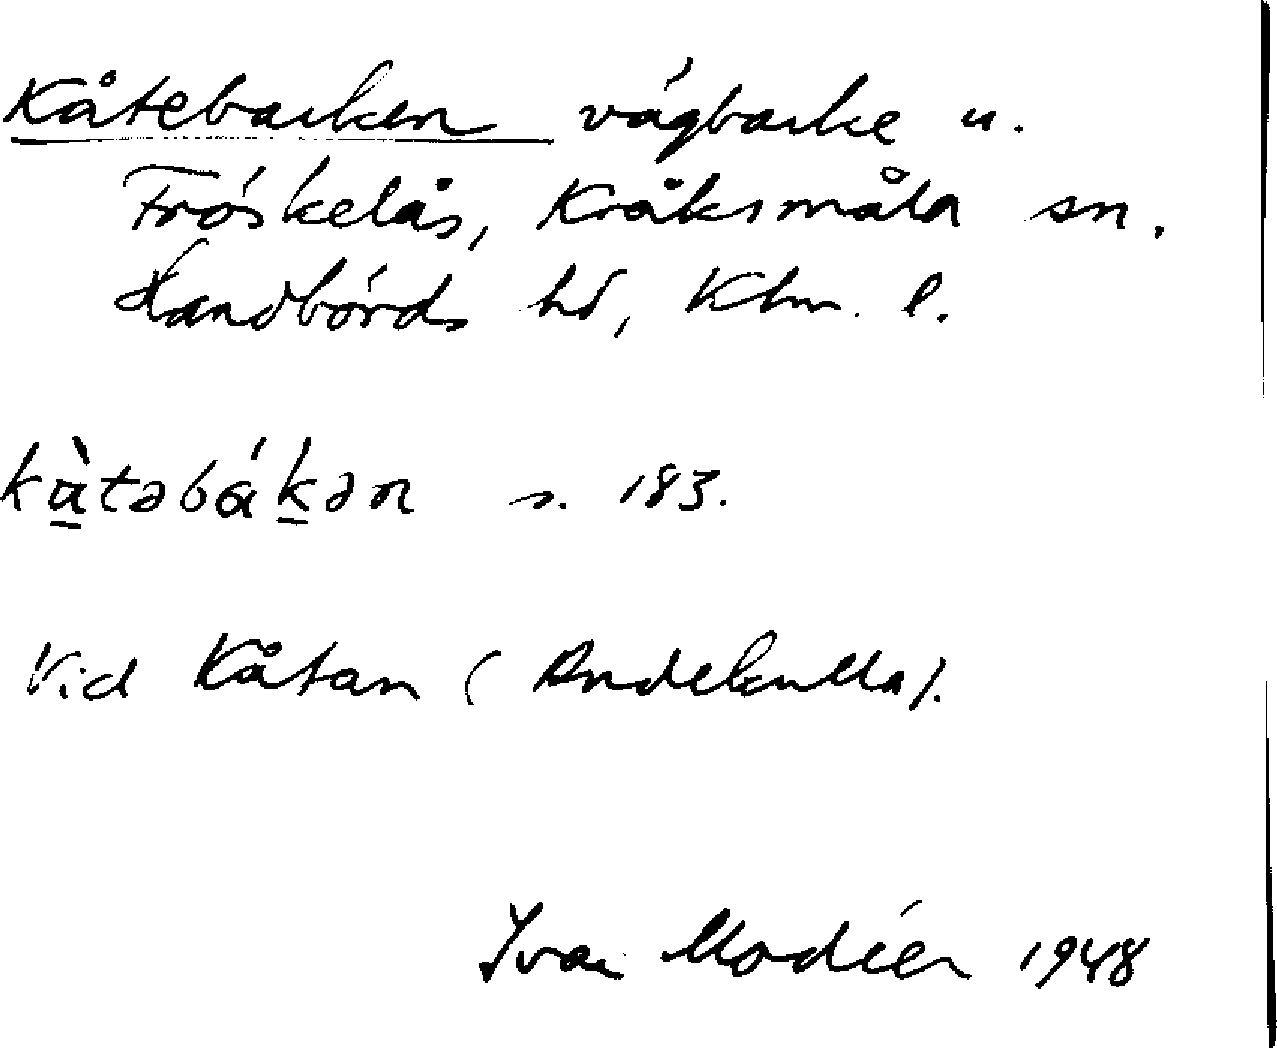 Kåtebacken vägbacke u.
Fröskelås, Kråksmåla sn.
Handbörds hd, Klm. l.
kὰ̠təbákən s. 183.
Vid Kåtan (Andekulla).
Ivar Modéer 1948